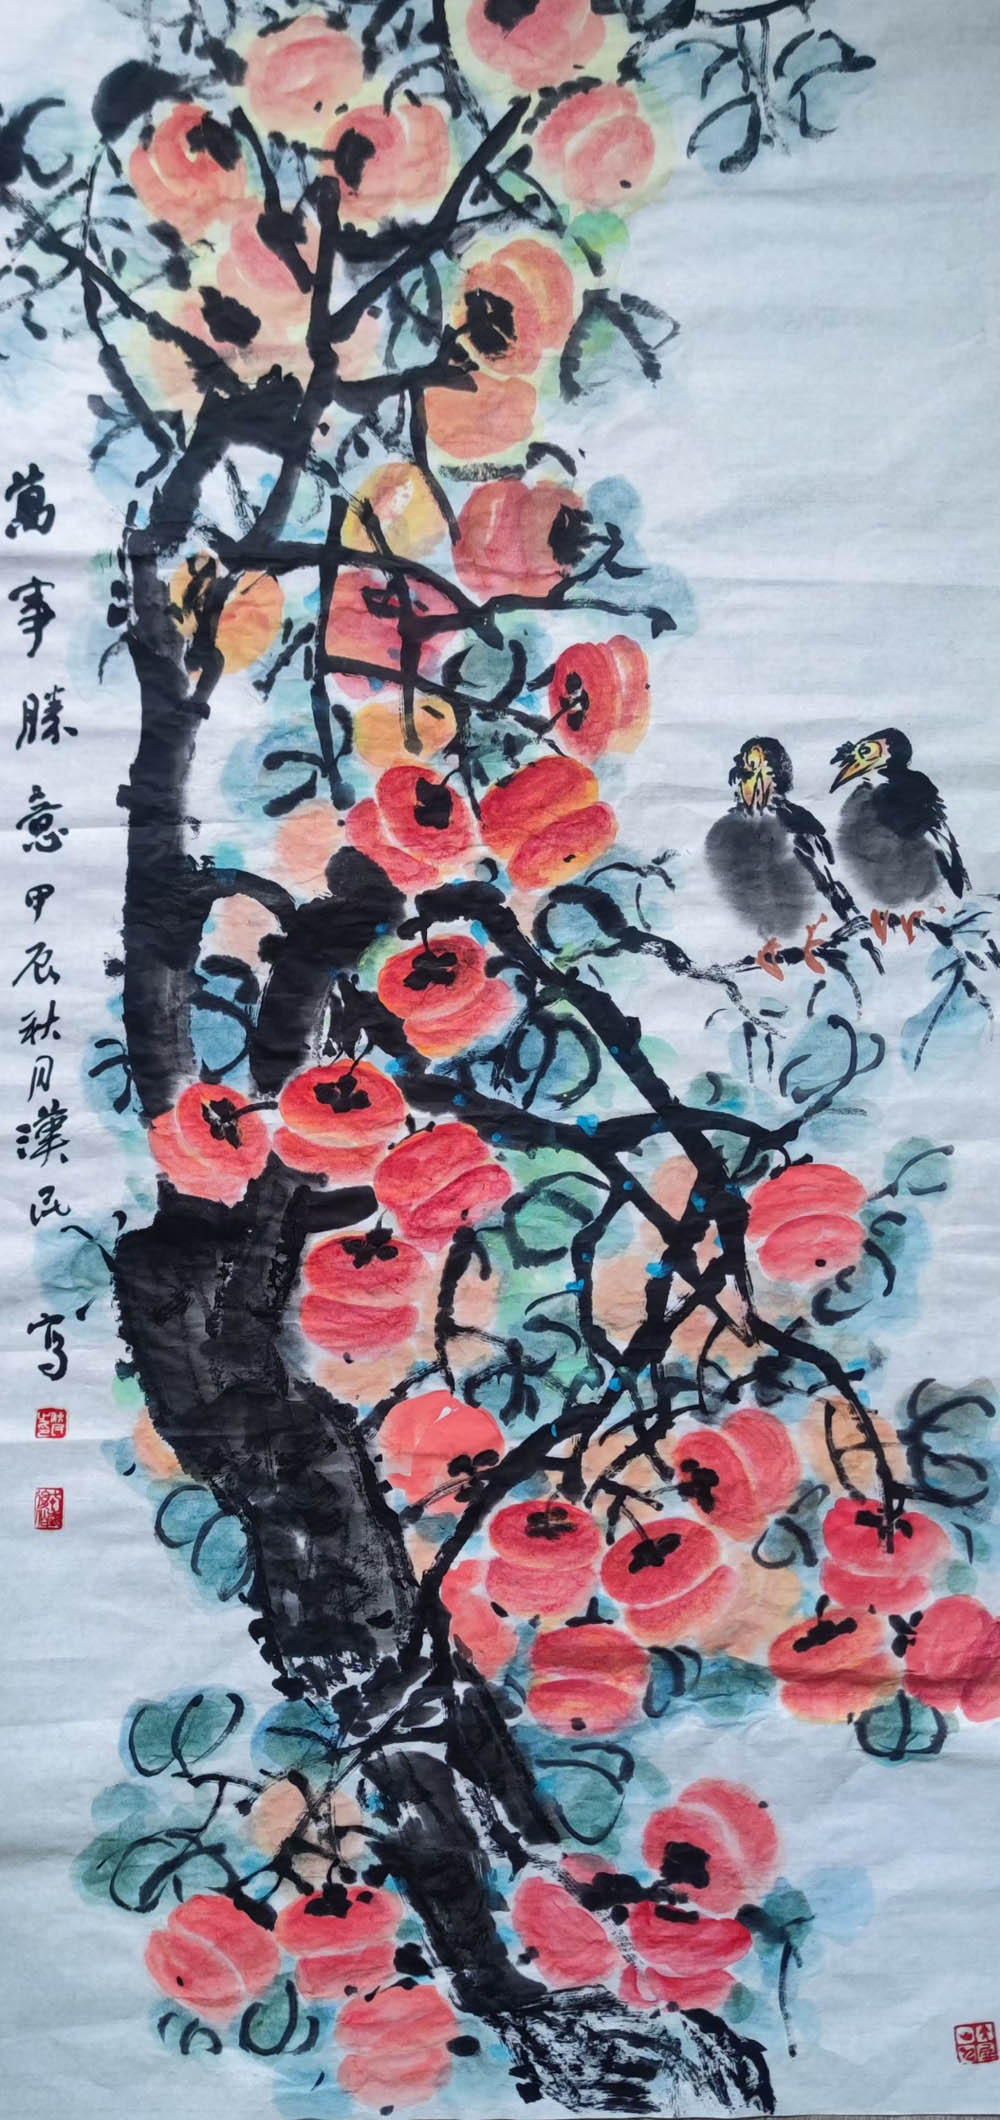 萬事勝意甲辰秋月漢民寫